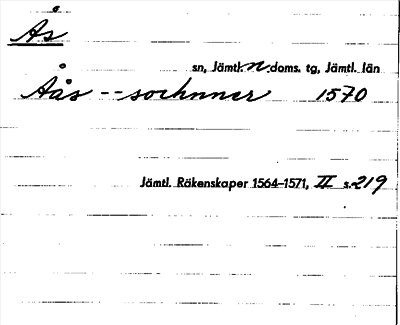 Ås
sn, Jämtl. n. doms. tg, Jämtl. län
Aås -- sochnner 1570
Jämtl. Räkenskaper 1564–1571, II s. 219